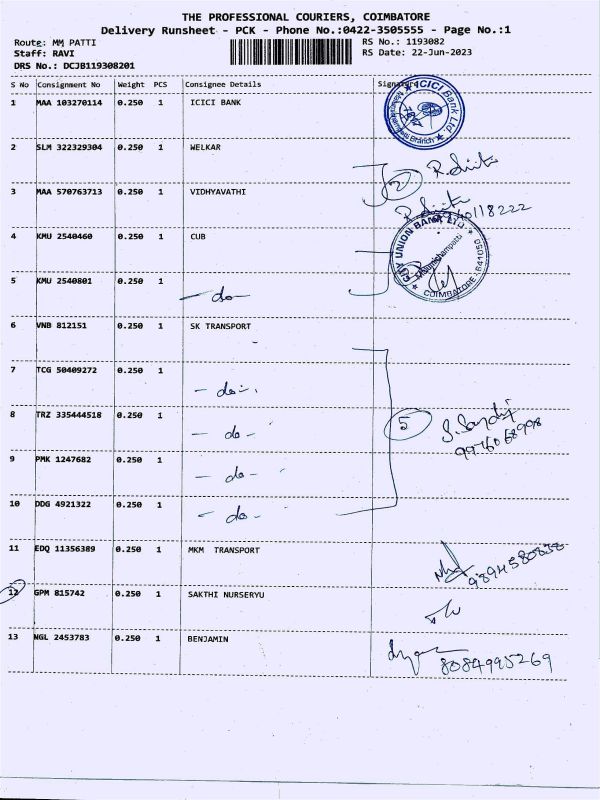 THE PROFESSIONAL COURIERS, COIMBATORE
Delivery Runsheet - PCK - Phone No.:0422-3505555 - Page No.:1
Route: MM PATTI RS No.: 1193082
Staff: RAVI RS Date: 22-Jun-2023
DRS No.: DCJB119308201
S No Consignment No Weight PCS Consignee Details Signature
1 MAA 103270114 0.250 1 ICICI BANK
ICICI Bank Ltd. Branch
2 SLM 322329304 0.250 1 WELKAR
2
3 MAA 570763713 0.250 1 VIDHYAVATHI
4 KMU 2540460 0.250 1 CUB
CITY UNION BANK LTD. COIMBATORE 641050
5 KMU 2540801 0.250 1
- do -
6 VNB 812151 0.250 1 SK TRANSPORT
7 TCG 50409272 0.250 1
- do -
8 TRZ 335444518 0.250 1
- do -
5
9976068998
9 PMK 1247682 0.250 1
- do -
10 DDG 4921322 0.250 1
- do -
11 EDQ 11356389 0.250 1 MKM TRANSPORT
9894580838
12 GPM 815742 0.250 1 SAKTHI NURSERYU
13 NGL 2453783 0.250 1 BENJAMIN
8084995269